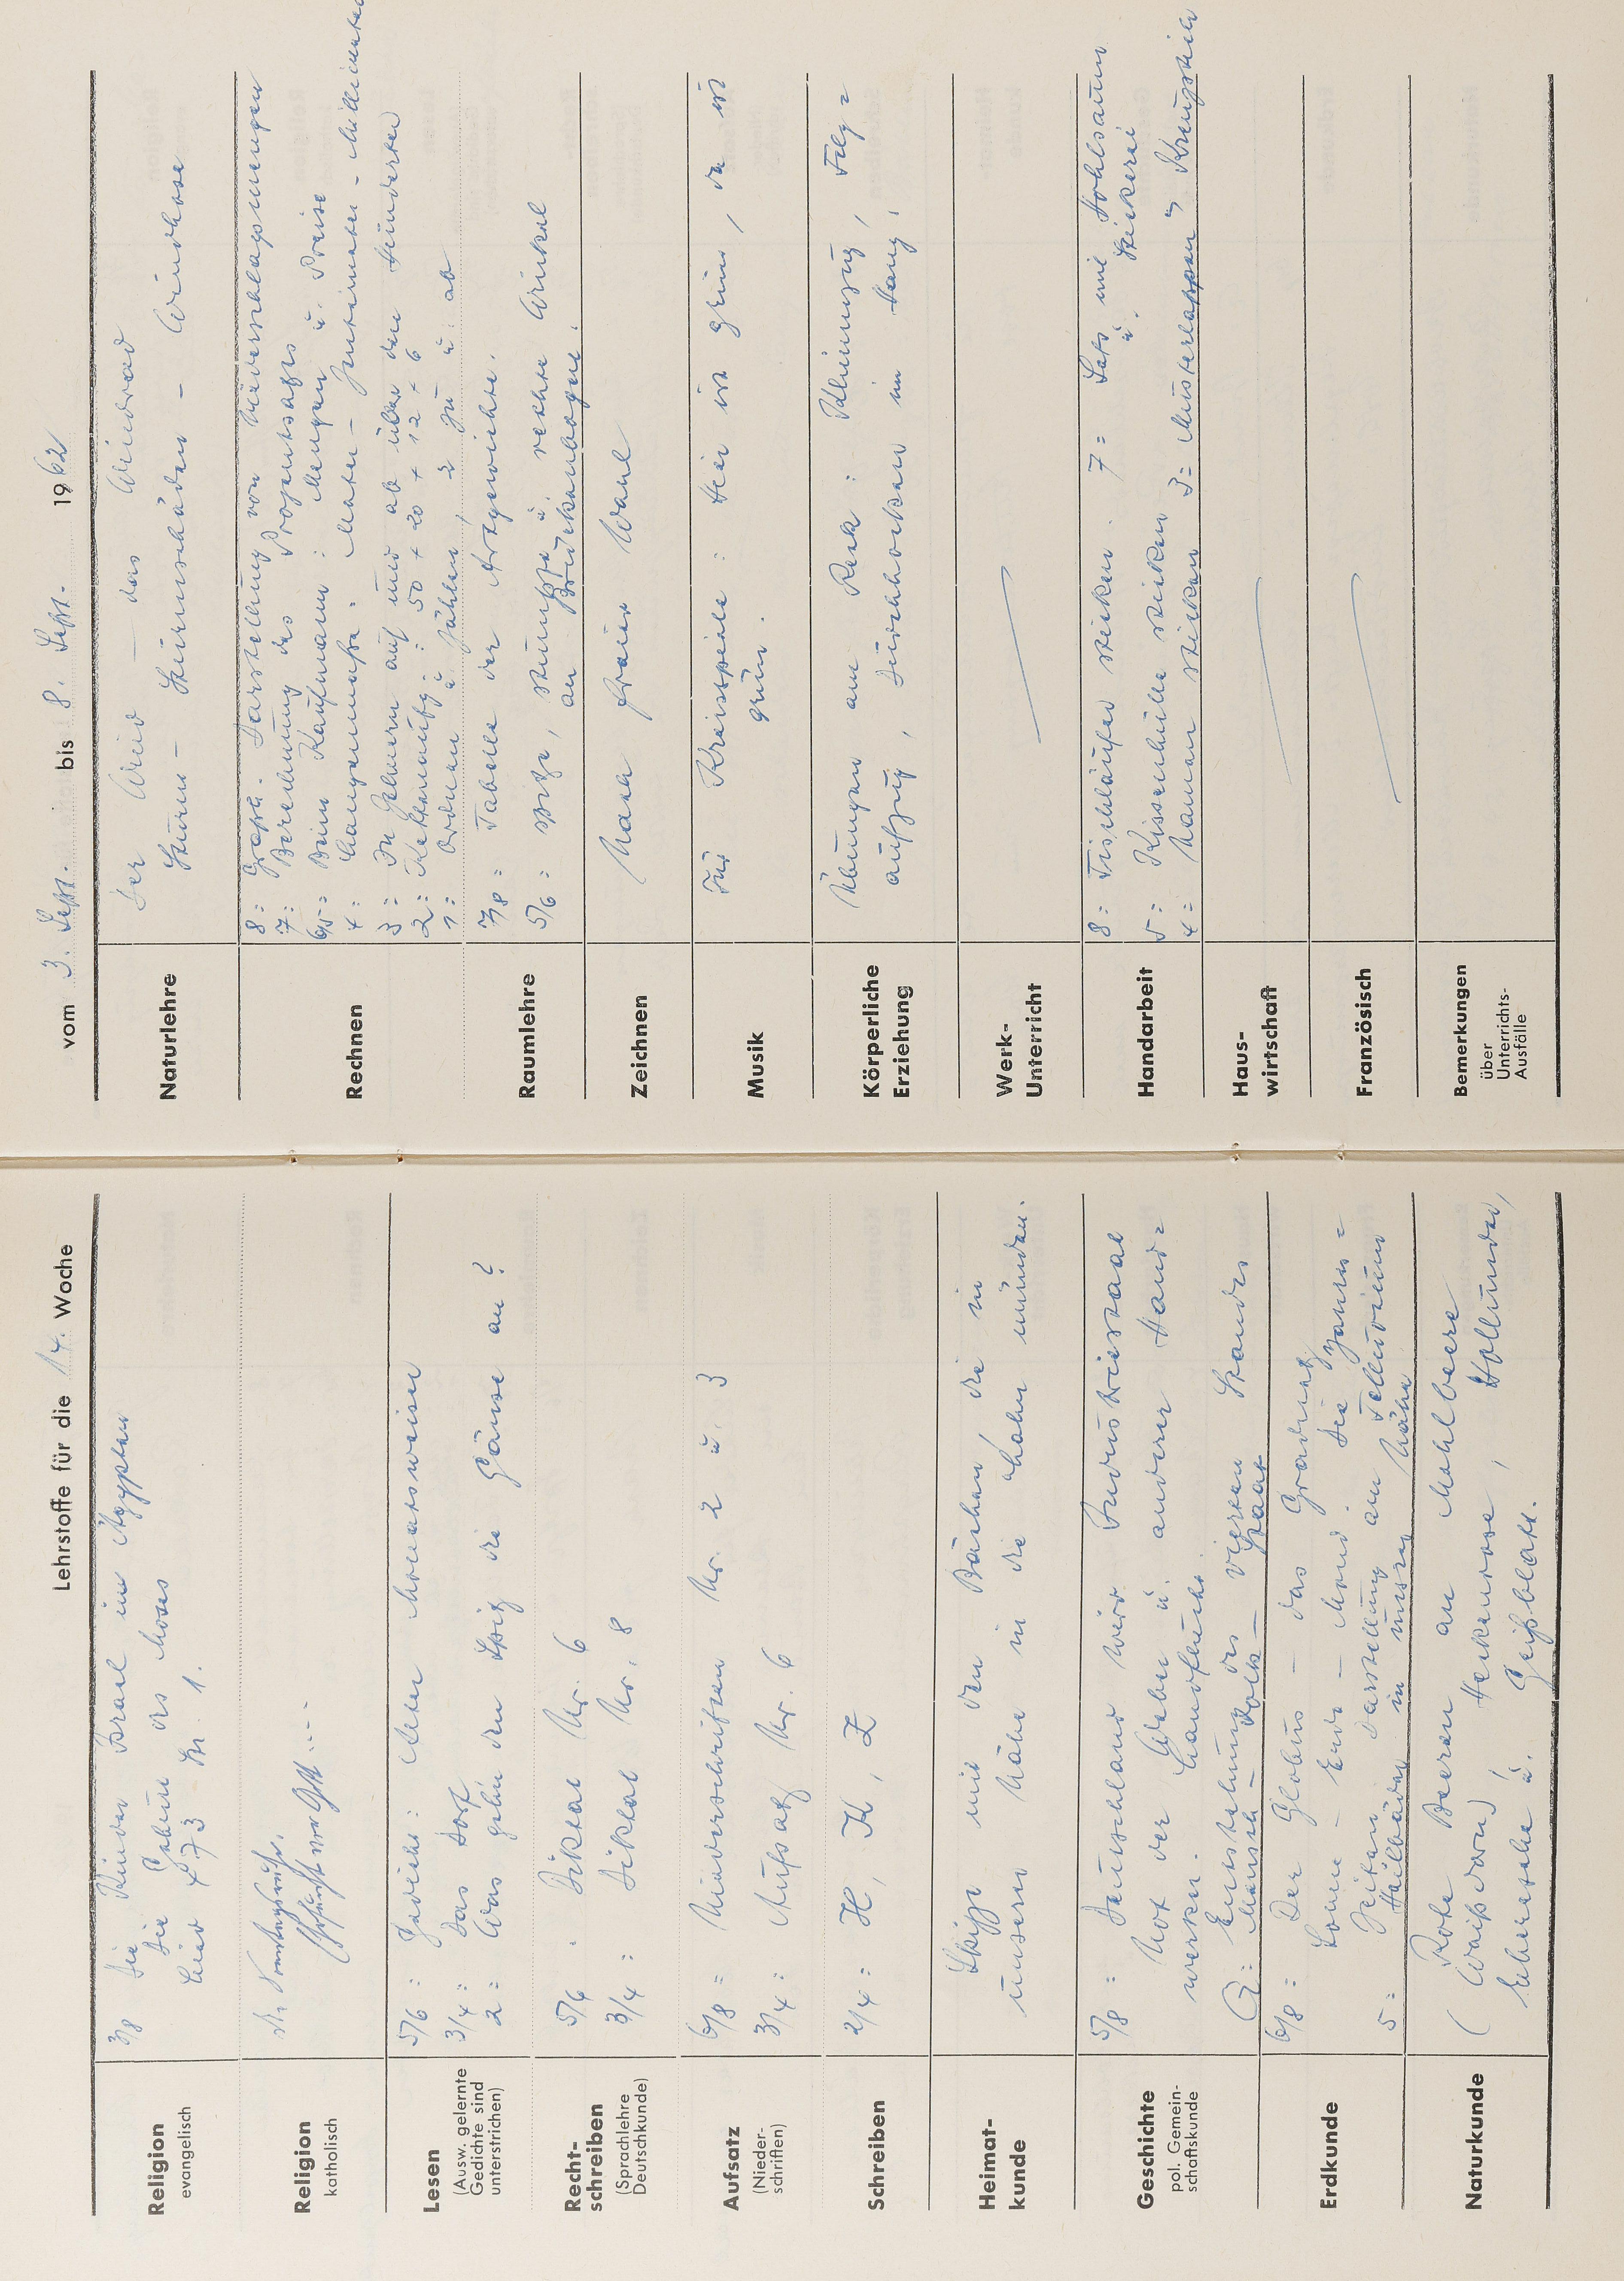 Lehrstoffe für die 14. Woche
Religion
evangelisch
3/8 Die Kinder Israel in Ägypten
Die Geburt des Moses
Lied 273 Str. 1.
Religion
katholisch
Ehrfurcht vor Gott ...
Lesen
(Ausw. gelernte
Gedichte sind
unterstrichen)
5/6: Gedicht: Alter Monatsweiser
3/4: Das Dorf
2: Was gehn den Spitz die Gänse an?
Recht-
schreiben
(Sprachlehre
Deutschkunde)
5/6 : Diktat Nr. 6
3/4 : Diktat Nr. 8
Aufsatz
(Nieder-
schriften)
6/8 = Niederschriften Nr. 2 u. 3
3/4: Aufsatz Nr. 6
Schreiben
2/4: H, K, Z
Heimat-
kunde
Skizze mit den Bächen, die in
unserer Nähe in die Lahn münden.
Geschichte
pol. Gemein-
schaftskunde
5/8 : Deutschland wird Industriestaat
Not der Weber u. anderer Hand=
werker. Landflucht.
Entstehung des vierten Standes
Mensch – Volk – Staat
Erdkunde
6/8: Der Globus – das Gradnetz
Sonne – Erde – Mond. Die Jahres=
zeiten Darstellung am Tellurium
5: Heilbäder in unserer Nähe
Naturkunde
(Rote Beeren an Mehlbeere
(Weißdorn), Heckenrose, Hollunder,
Eberesche u. Geißblatt.
vom 3. Sept. bis 8. Sept. 1962
Naturlehre
Der Wind – das Windrad
Sturm – Sturmschäden – Windhose
Rechnen
8: Graph. Darstellung von Niederschlagsmengen
7: Berechnung des Prozentsatzes
6/5: Beim Kaufmann: Mengen u. Preise
4: Längenmaße: Meter – Zentimeter – Millimeter
3: In Zehnern auf und ab über den Hunderter
2: 50 + 20 + 12 + 6
1: Ordnen u. Zählen, 2 zu u. ab
Raumlehre
7/8: Tabelle der Artgewichte.
5/6: spitze, stumpfe u. rechte Winkel
an Brückenbogen.
Zeichnen
Nach freier Wahl
Musik
Kreisspiele: Hier ist grün, da ist
grün.
Körperliche
Erziehung
Übungen am Reck: Klimmzug, Felg=
aufzug, Durchhocken im Hang.
Werk-
Unterricht
Handarbeit
8: Tischläufer sticken. 7= Satz mit Hohlsaum
u. Stickerei
5: Kissenhülle sticken
4: Namen sticken 3= Musterlappen, Kreuzstich
Haus-
wirtschaft
Französisch
Bemerkungen
über
Unterrichts-
Ausfälle